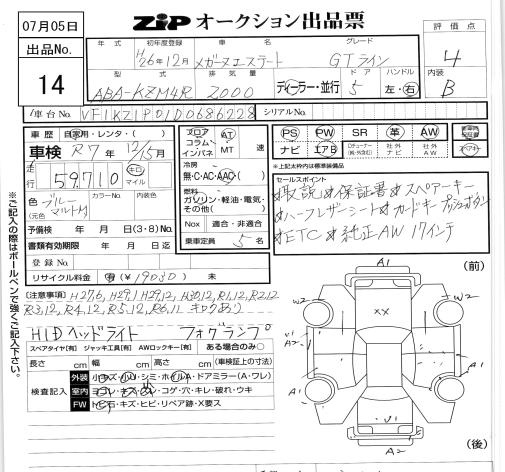 07月05日
ZIP オークション出品票
評価点
出品No.
14
年式 初年度登録 車名 グレード
H26年12月 メガーヌエステート GTライン
4
型式 排気量 ドア ハンドル
ABA-KZM4R 2000 ディーラー・並行 5 左・右
内装
B
車台No. VF1KZ1P0 D0686228 シリアルNo.
車歴 自家用・レンタ・( )
車検 R7年 12/15月
走行 59710 キロ マイル
色 ブルー カラーNo. 内装色
(元色)
予備検 年 月 日(3・8)No.
書類有効期限 年 月 日迄
登録No.
リサイクル料金 有(¥19030) 未
フロア コラム インパネ AT MT 速
冷房
無・C・AC・AAC( )
燃料
ガソリン・軽油・電気・その他( )
Nox 適合・非適合
乗車定員 5 名
PS PW SR 革 AW
ナビ エアB 社外ナビ 社外AW
*上記太わく内は標準装備品
セールスポイント
*取説*保証書*スペアーキー
*ハーフレザーシート*カードキー プッシュボタン
*ETC*純正AW 17インチ
[注意事項] H27.6, H29.1 H29.12, H30.12, R1.12, R2.12
R3.12, R4.12, R5.12, R6.11 キロクあり
HIDヘッドライト フォグランプ
スペアタイヤ[有] ジャッキ工具[有] AWロックキー[有] ある場合のみ○
長さ cm 幅 cm 高さ cm (車検証上の寸法)
検査記入
外装 小キズ・小凹・シミ・ホイルA・ドアミラー(A・ワレ)
室内 ヨゴレ・キズ・シミ・コゲ・穴・キレ・破れ・ウキ
FW トビ石・キズ・ヒビ・リペア跡・X要ス
※ご記入の際はボールペンで強くご記入下さい。
A1
(前)
W2
W2
XX
U1
A2
A2
V1
A2
(後)